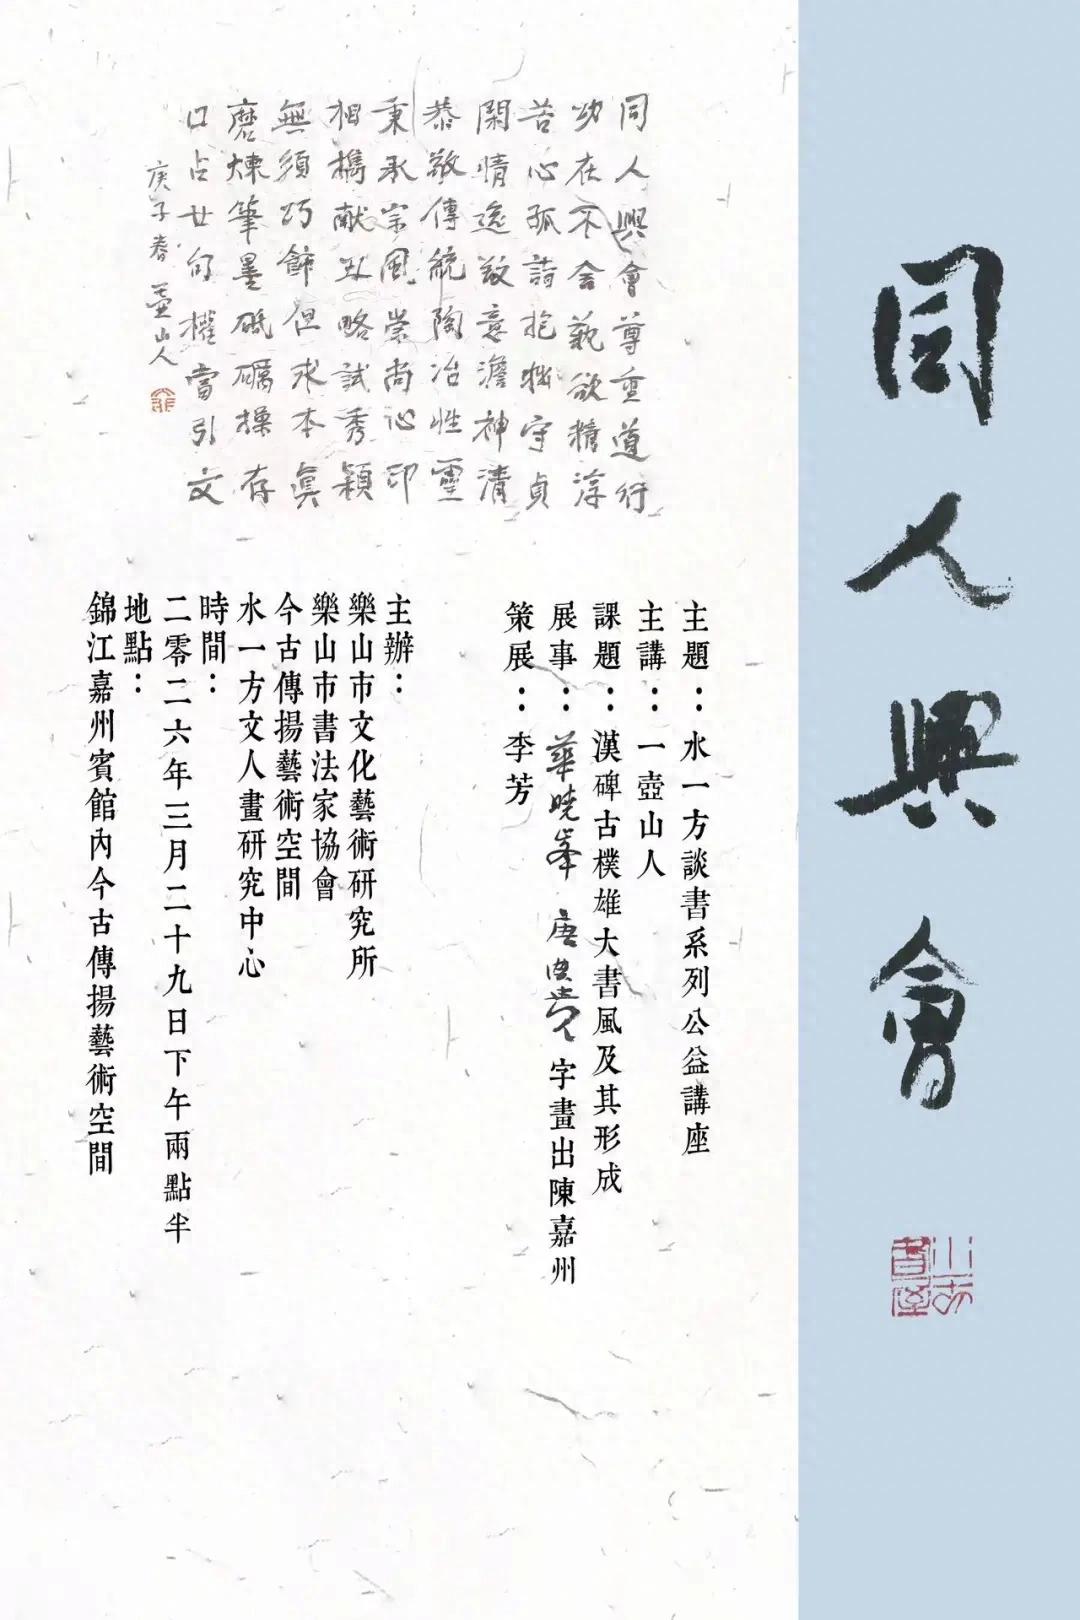 同人興會
同人興會尊重道行
功在不舍藝欲精淳
苦心孤詣抱樸守貞
閑情逸致意澹神清
恭敬傳統陶冶性靈
秉承宗風崇尚心印
相攜献丑略試秀穎
無須巧飾但求本眞
磨煉筆墨砥礪操存
口占廿句權當引文
庚子春 壺山人
主題：水一方談書系列公益講座
主講：一壺山人
課題：漢碑古樸雄大書風及其形成
展事：華曉峯 唐 字畫出陳嘉州
策展：李芳
主辦：
樂山市文化藝術研究所
樂山市書法家協會
今古傳揚藝術空間
水一方文人畫研究中心
時間：
二零二六年三月二十九日下午兩點半
地點：
錦江嘉州賓館內今古傳揚藝術空間